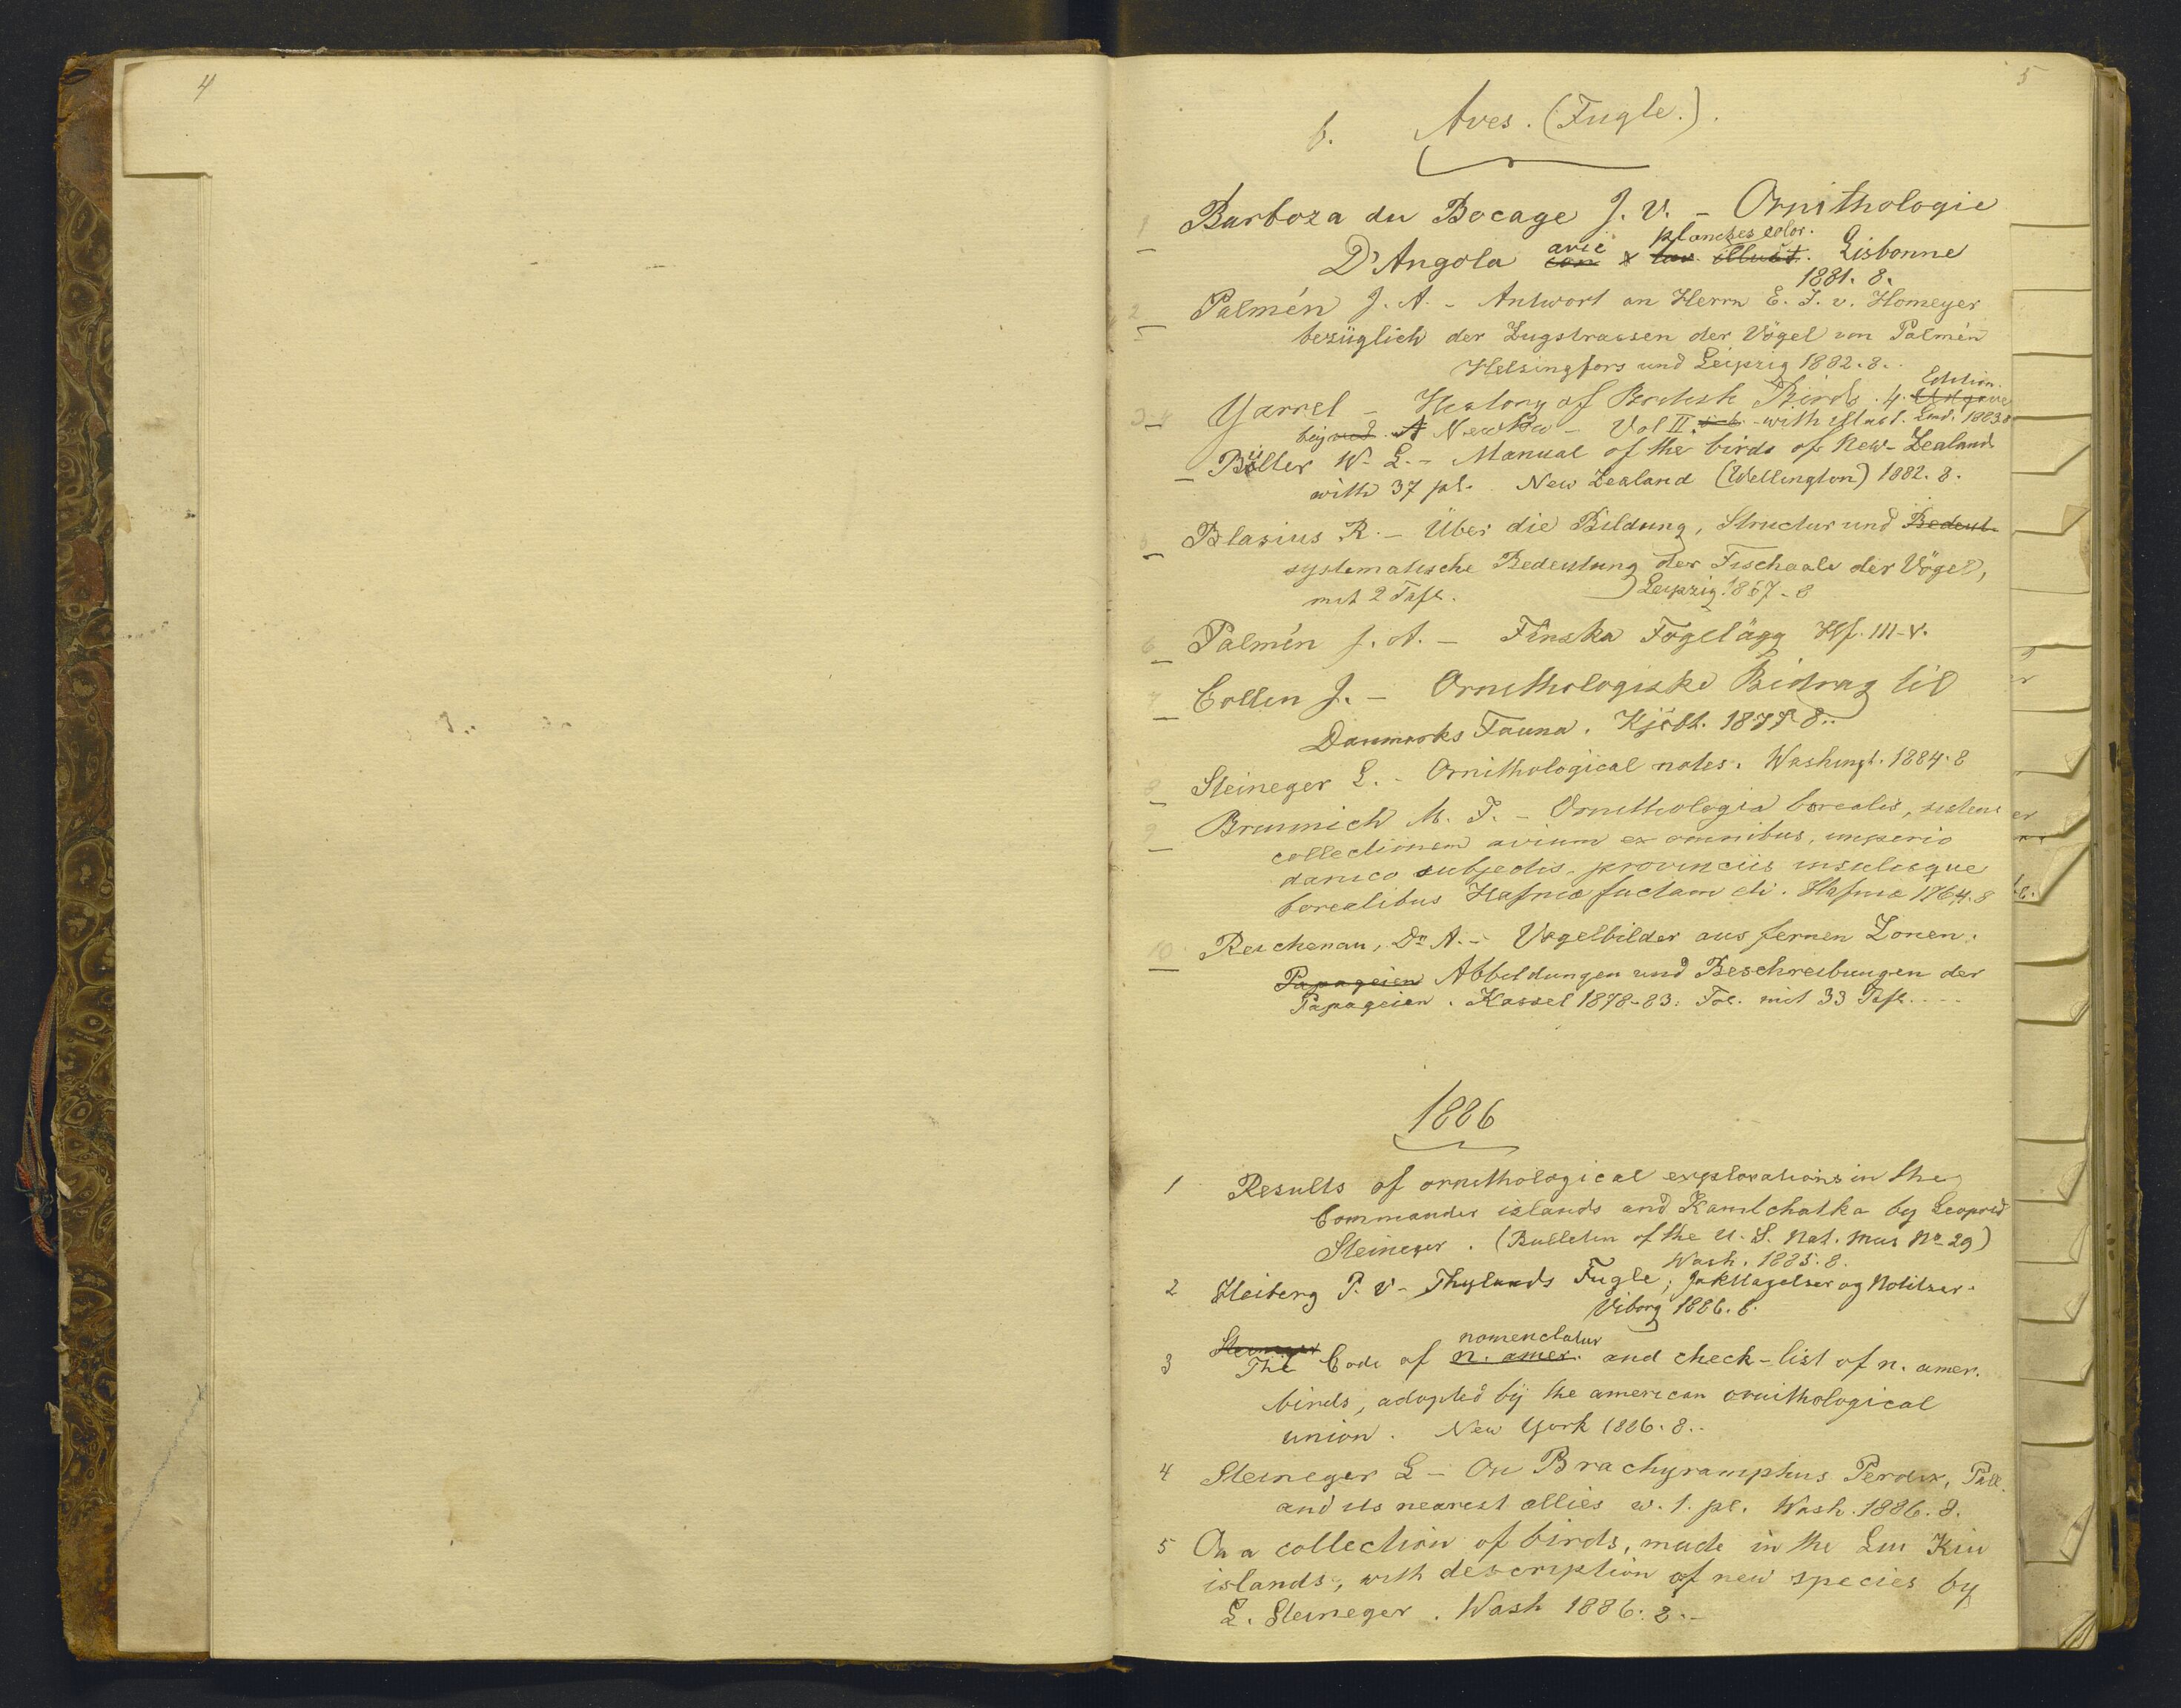 4
5
b. Aves. (Fugle.).
1 Barboza du Bocage J. V. – Ornithologie
D'Angola avec planches color. Lisbonne
1881. 8.
2 Palmén J. A. – Antwort an Herrn E. F. v. Homeyer
bezüglich der Zugstrassen der Vögel von Palmén
Helsingfors und Leipzig 1882. 8.
3-4 Yarrel – History of British Birds. 4. Edition.
by Newton – Vol II. with illust. Lond. 1883. 8
Buller W. L. – Manual of the birds of New-Zealand
with 37 pl. New Zealand (Wellington) 1882. 8.
5 Blasius R. – Über die Bildung, Structur und Bedeut.
systematische Bedeutung der Eischaale der Vögel,
mit 2 Tafl. Leipzig. 1867. 8
6 Palmén J. A. – Finska Fogelägg Hf. III-V.
7 Collin J. – Ornithologiske Bidrag til
Danmarks Fauna. Kjöbh. 1877 8..
8 Steineger L. – Ornithological notes. Washingt. 1884. 8
9 Brunnich M. T. – Ornithologia borealis, sistens
collectionem avium ex omnibus, imperio
danico subjectis, provinciis insulisque
borealibus Hafniæ factam etc. Hafniæ 1764. 8
10 Reichenau, Dr A. – Vogelbilder aus fernen Zonen.
Papageien Abbildungen und Beschreibungen der
Papageien. Kassel 1878-83. Fol. mit 33 Tafl....
1886
1 Results of ornithological explorations in the
Commander islands and Kamtchatka by Leopold
Steineger. (Bulletin of the U. S. Nat. Mus No 29)
Wash. 1885. 8.
2 Heiberg P. V – Thylands Fugle; Jakttagelser og Notitser.
Viborg 1886. 8.
Steineger nomenclatur
3 The Code of n. amer. and check-list of n. amer.
birds, adopted by the american ornithological
union. New York 1886. 8..
4 Steineger L – On Brachyramphus Perdix, Pall.
and its nearest allies w. 1. pl. Wash. 1886. 8.
5 On a collection of birds, made in the Liu Kiu
islands, with description of new species by
L. Steineger. Wash 1886. 8.–